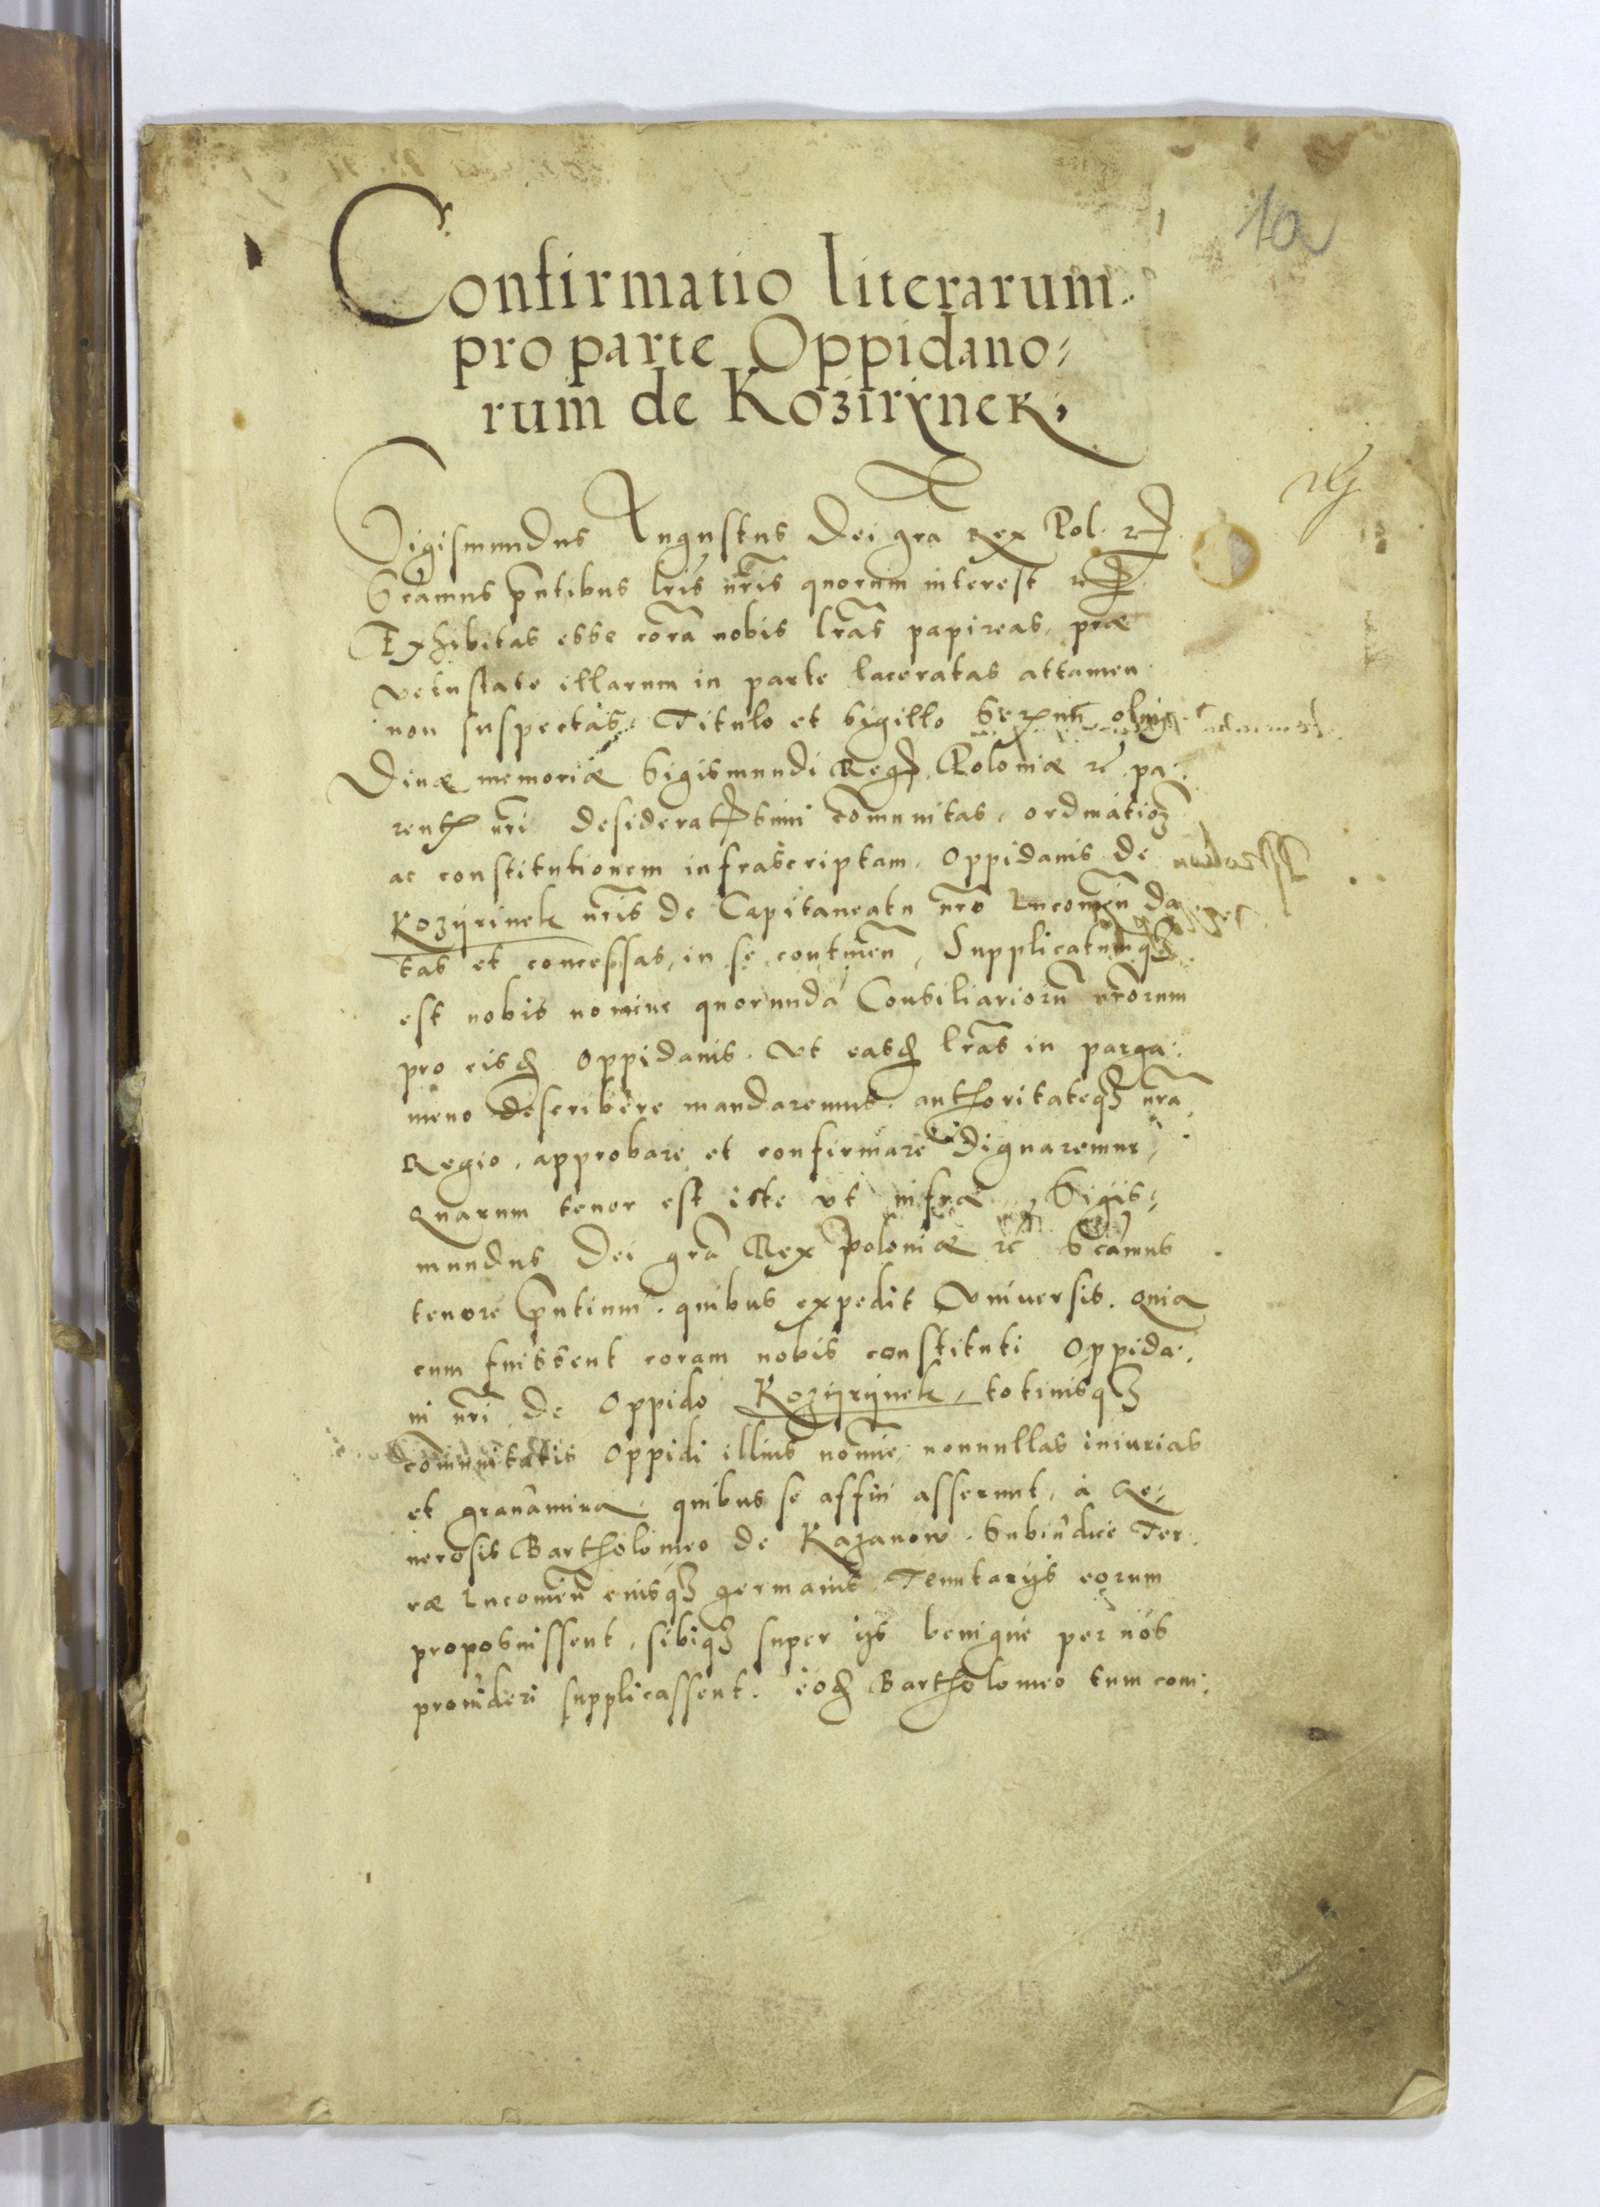 10
Confirmatio literarum
pro parte Oppidano⸗
rum de Kozirÿnek,
Sigismundus Augustus Dei gra̅ Rex Pol.
Sc̃amus pn̄tibus lr̃is nr̃is quorum interest
Exhibitas esse cora̅ nobis lr̃as papireas, præ
vetustate illarum in parte laceratas attamen
non suspectas, Titulo et sigillo olim
Diuæ memoriæ Sigismundi Reg Poloniæ rc̃ pa⸗
rent nr̃i desideratssimi com̅unitas, ordinatio
ac constitutionem infrascriptam, Oppidanis de
Kozyrinek nr̃is de Capitaneatu nr̃o Lucomien̅ da
tas et concessas, in se contin̅en, Supplicatumqꝫ
est nobis nomine quorunda̅ Consiliarioru̅ nr̃orum
pro eisd Oppidanis, vt easd lr̃as in parga⸗
meno describere mandaremus, authoritateqꝫ nr̃a
Regia, approbare et confirmare dignaremur,
Quarum tenor est iste vt infra, Sigis⸗
mundus Dei gra̅ Rex Poloniæ rc̃ Sc̃amus
tenore pn̄tium, quibus expedit Vniuersis, Quia
cum fuissent coram nobis constituti Oppida⸗
ni nr̃i de Oppido Kozyrynek, totiusqꝫ
com̅unitatis Oppidi illius no̅ie, nonnullas iniurias
et grauamina, quibus se affici asserunt, à Ge⸗
nerosis Bartholomeo de Kazanow, Subiudice Ter
ræ Lucomien̅ eiusqꝫ germanis Tenutarijs eorum
proposuissent, sibiqꝫ super ijs benigne per nos
prouideri supplicassent, eod Bartholomeo tum com⸗